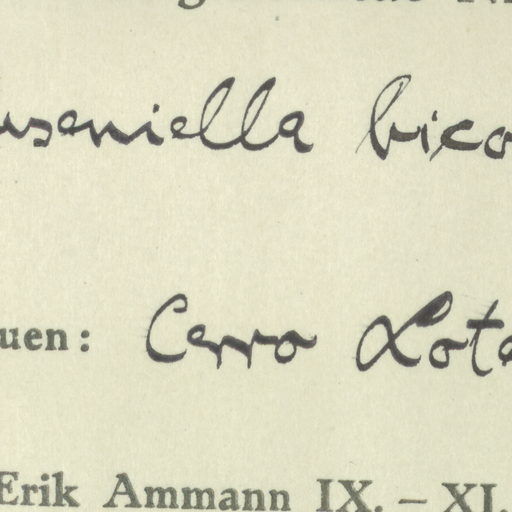 useniella bico
uen: Cerro Lota
Erik Ammann IX. – XI.